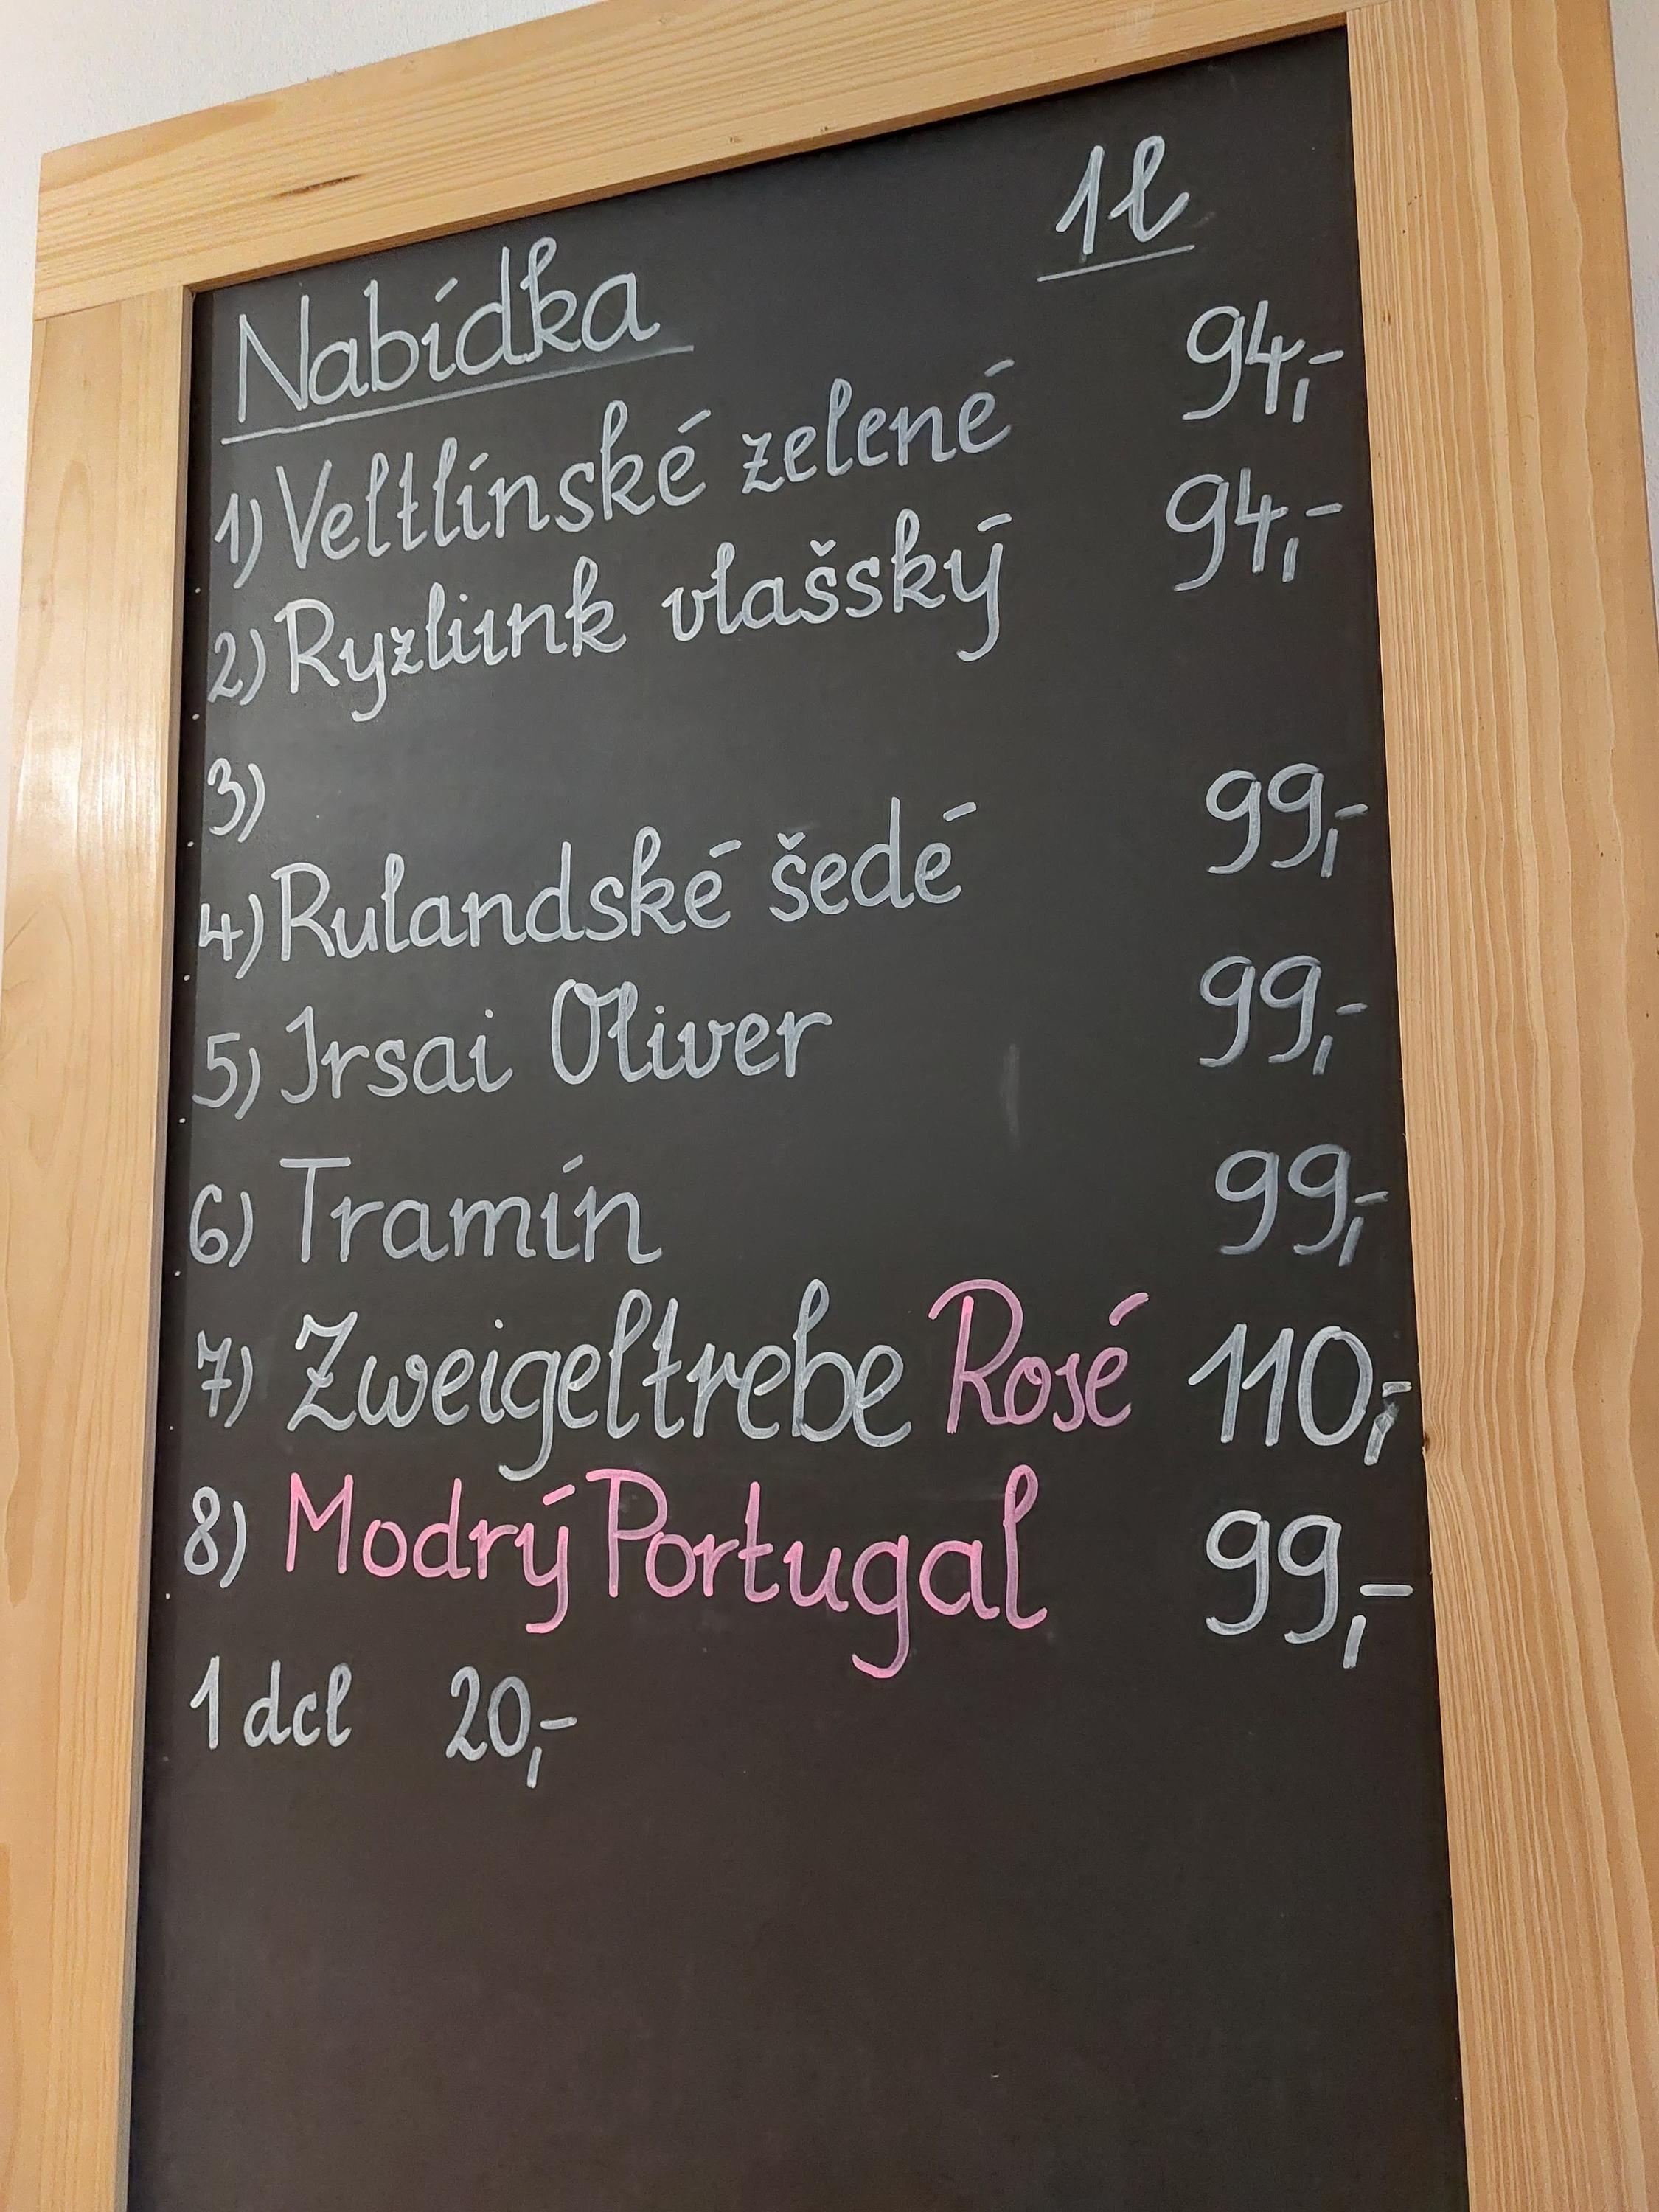 Nabídka 1l
1) Veltlínské zelené 94,-
2) Ryzlink vlašský 94,-
3)
4) Rulandské šedé 99,-
5) Irsai Oliver 99,-
6) Tramín 99,-
7) Zweigeltrebe Rosé 110,-
8) Modrý Portugal 99,-
1 dcl 20,-